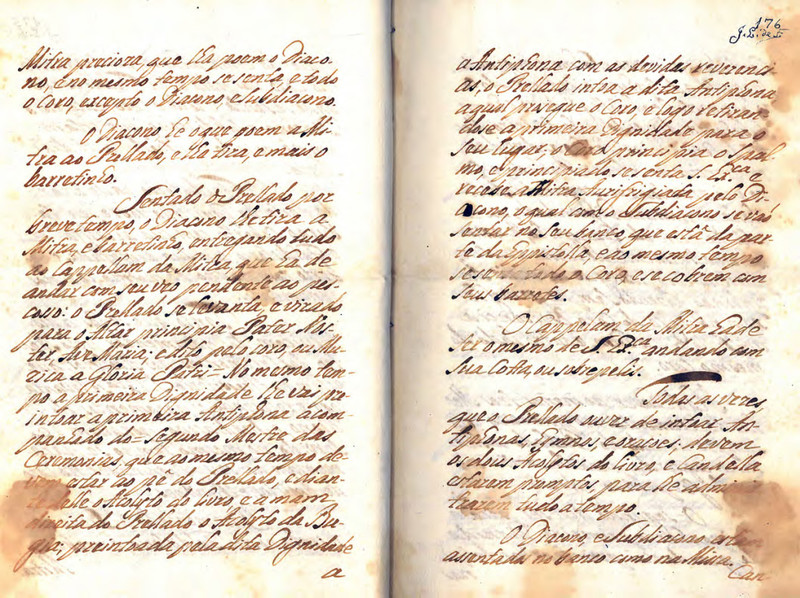 Mitra precioza, que lha poem o Diaco-
no, e no mesmo tempo se senta, e todo
o Coro, excepto o Diacono, e Subdiacono.
O Diacono he o que poem a Mi-
tra ao Prellado, e lha tira, e mais o
barretinho.
Sentado o Prellado por
breve tempo, o Diacono lhe tira a
Mitra, e barretinho, entregando tudo
ao Cappellam da Mitra que ha de
andar com seu veo pendente ao pes-
coso: o Prellado se levanta, e virado
para o Altar principia Pater Nos-
ter Ave Maria: e dito pelo coro, ou Mu-
zica a Gloria Patri = No mesmo tem-
po a primeira Dignidade lhe vai pre-
intoar a primeira Antiphona acom-
panhado do = Segundo Mestre das
Ceremonias, que ao mesmo tempo de-
estar ao pê do Prellado, e dian-
te delle o Acolyto do livro, e a mam
direita do Prellado o Acolyto da Bu-
gia; preintoada pela dita Dignidade
a
176
a Antiphona com as devidas reverenci-
as, o Prellado intoa a dita Antiphona,
a qual prosegue o Coro, e logo retiran-
dose a primeira Dignidade para o
seu lugar, o Coro principia o Spal-
mo, e principiado se senta S. Exca e
recebe a Mitra Aurifrigiada pelo Di-
acono, o qual com o Subdiacono se vai
sentar no seu banco, que está da par-
te da Epistolla, e ao mesmo tempo
se senta todo o Coro, e se cobrem com
seus barretes.
O Cappelam da Mitra ha de
ser o mesmo de S. Exca andando com
sua Cotta, ou sobrepelis.
Todas as vezes
que o Prellado ouver de intoar An-
tiphonas, Hymnos, e oraçoes, devem
os dous Acolytos do livro, e Candella
estarem promptos para lhe adminis-
trarem tudo a tempo.
O Diacono, e Subdiacono estam
assentados no banco como na Missa.
Can